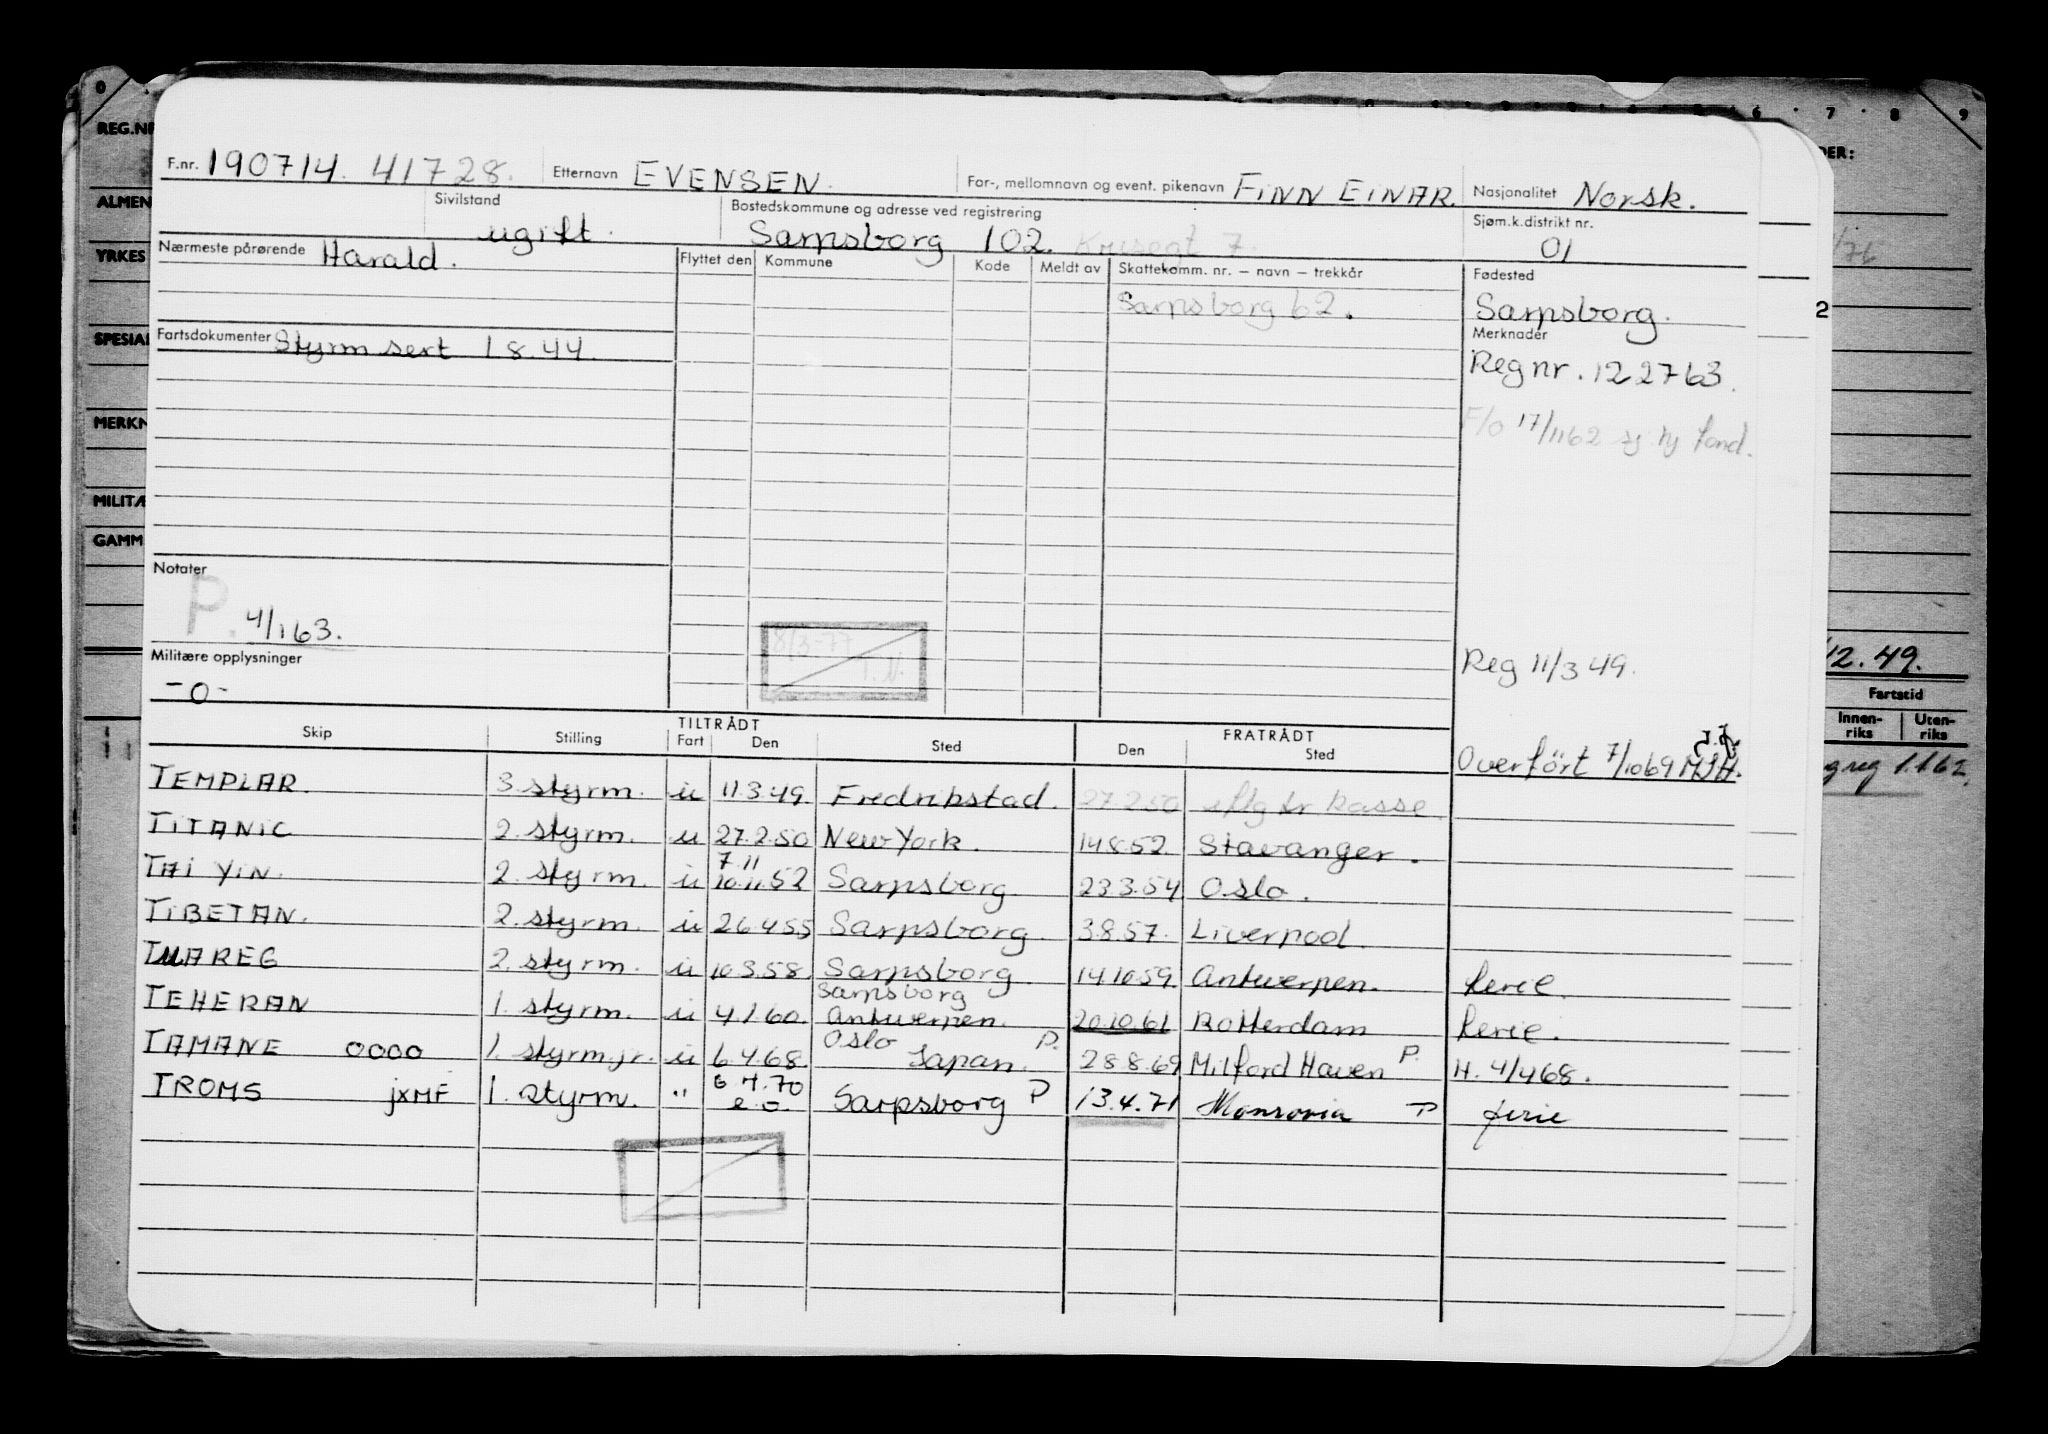 F.nr. 190714. 41728. Etternavn EVENSEN. For-, mellomnavn og event. pikenavn FINN EINAR. Nasjonalitet Norsk.
Sivilstand ugift. Bostedskommune og adresse ved registrering Sarpsborg 102. 7. Sjøm.k.distrikt nr. 01
Nærmeste pårørende Harald. Flyttet den Kommune Kode Meldt av Skattekomm. nr. – navn – trekkår Fødested
Sarpsborg 62. Sarpsborg.
Fartsdokumenter Styrm sert 1 8.44. Merknader
Reg nr. 122763.
F/o 17/1162 sj. fond.
Notater
P. 4/163.
8/3-77
T.N.
Militære opplysninger
-0-
Reg 11/3 49.
Overført 7/1069 MJH.
Skip Stilling TILTRÅDT Fart Den Sted FRATRÅDT Den Sted
TEMPLAR. 3 styrm. u 11.3.49. Fredrikstad. 27.2.50 kasse
TITANIC 2. styrm. u 27.2.50 New York. 14.8.52. Stavanger.
TAI YIN. 2. styrm. u 7.11 10.11.52 Sarpsborg 23.3.54 Oslo.
TIBETAN. 2. styrm. u 26.4.55 Sarpsborg. 3.8.57. Liverpool.
TUAREG 2. styrm. u 10.3.58. Sarpsborg 14.10.59. Antwerpen. ferie.
TEHERAN 1. styrm. u 4.1.60. Sarpsborg Antwerpen. 20.10.61 Rotterdam ferie.
TAMANE 0000 1. styrm.jr. u 6.4.68. Oslo Japan. P. 28.8.69 Milford Haven P. H. 4/468.
TROMS jxMF 1. styrm. " 6.4.70 e.o. Sarpsborg P 13.4.71 Monrovia P ferie
REG.NR
ALMEN
YRKES
SPESIAL
MERKN
MILITÆ
GAMM
0 6 7 8 9
DER:
/76
2
12.49.
Fartstid
Innen-riks Uten-riks
reg 1.1.62.